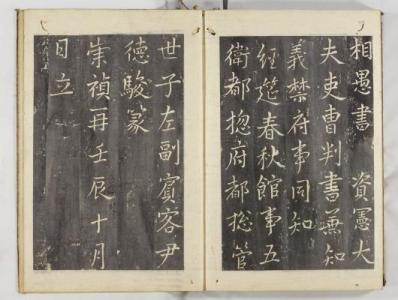 相愚書 資憲大
夫吏曹判書兼知
義禁府事同知
經筵春秋館事五
衛都摠府都摠管
世子左副賓客尹
德駿篆
崇禎再壬辰十月
日立